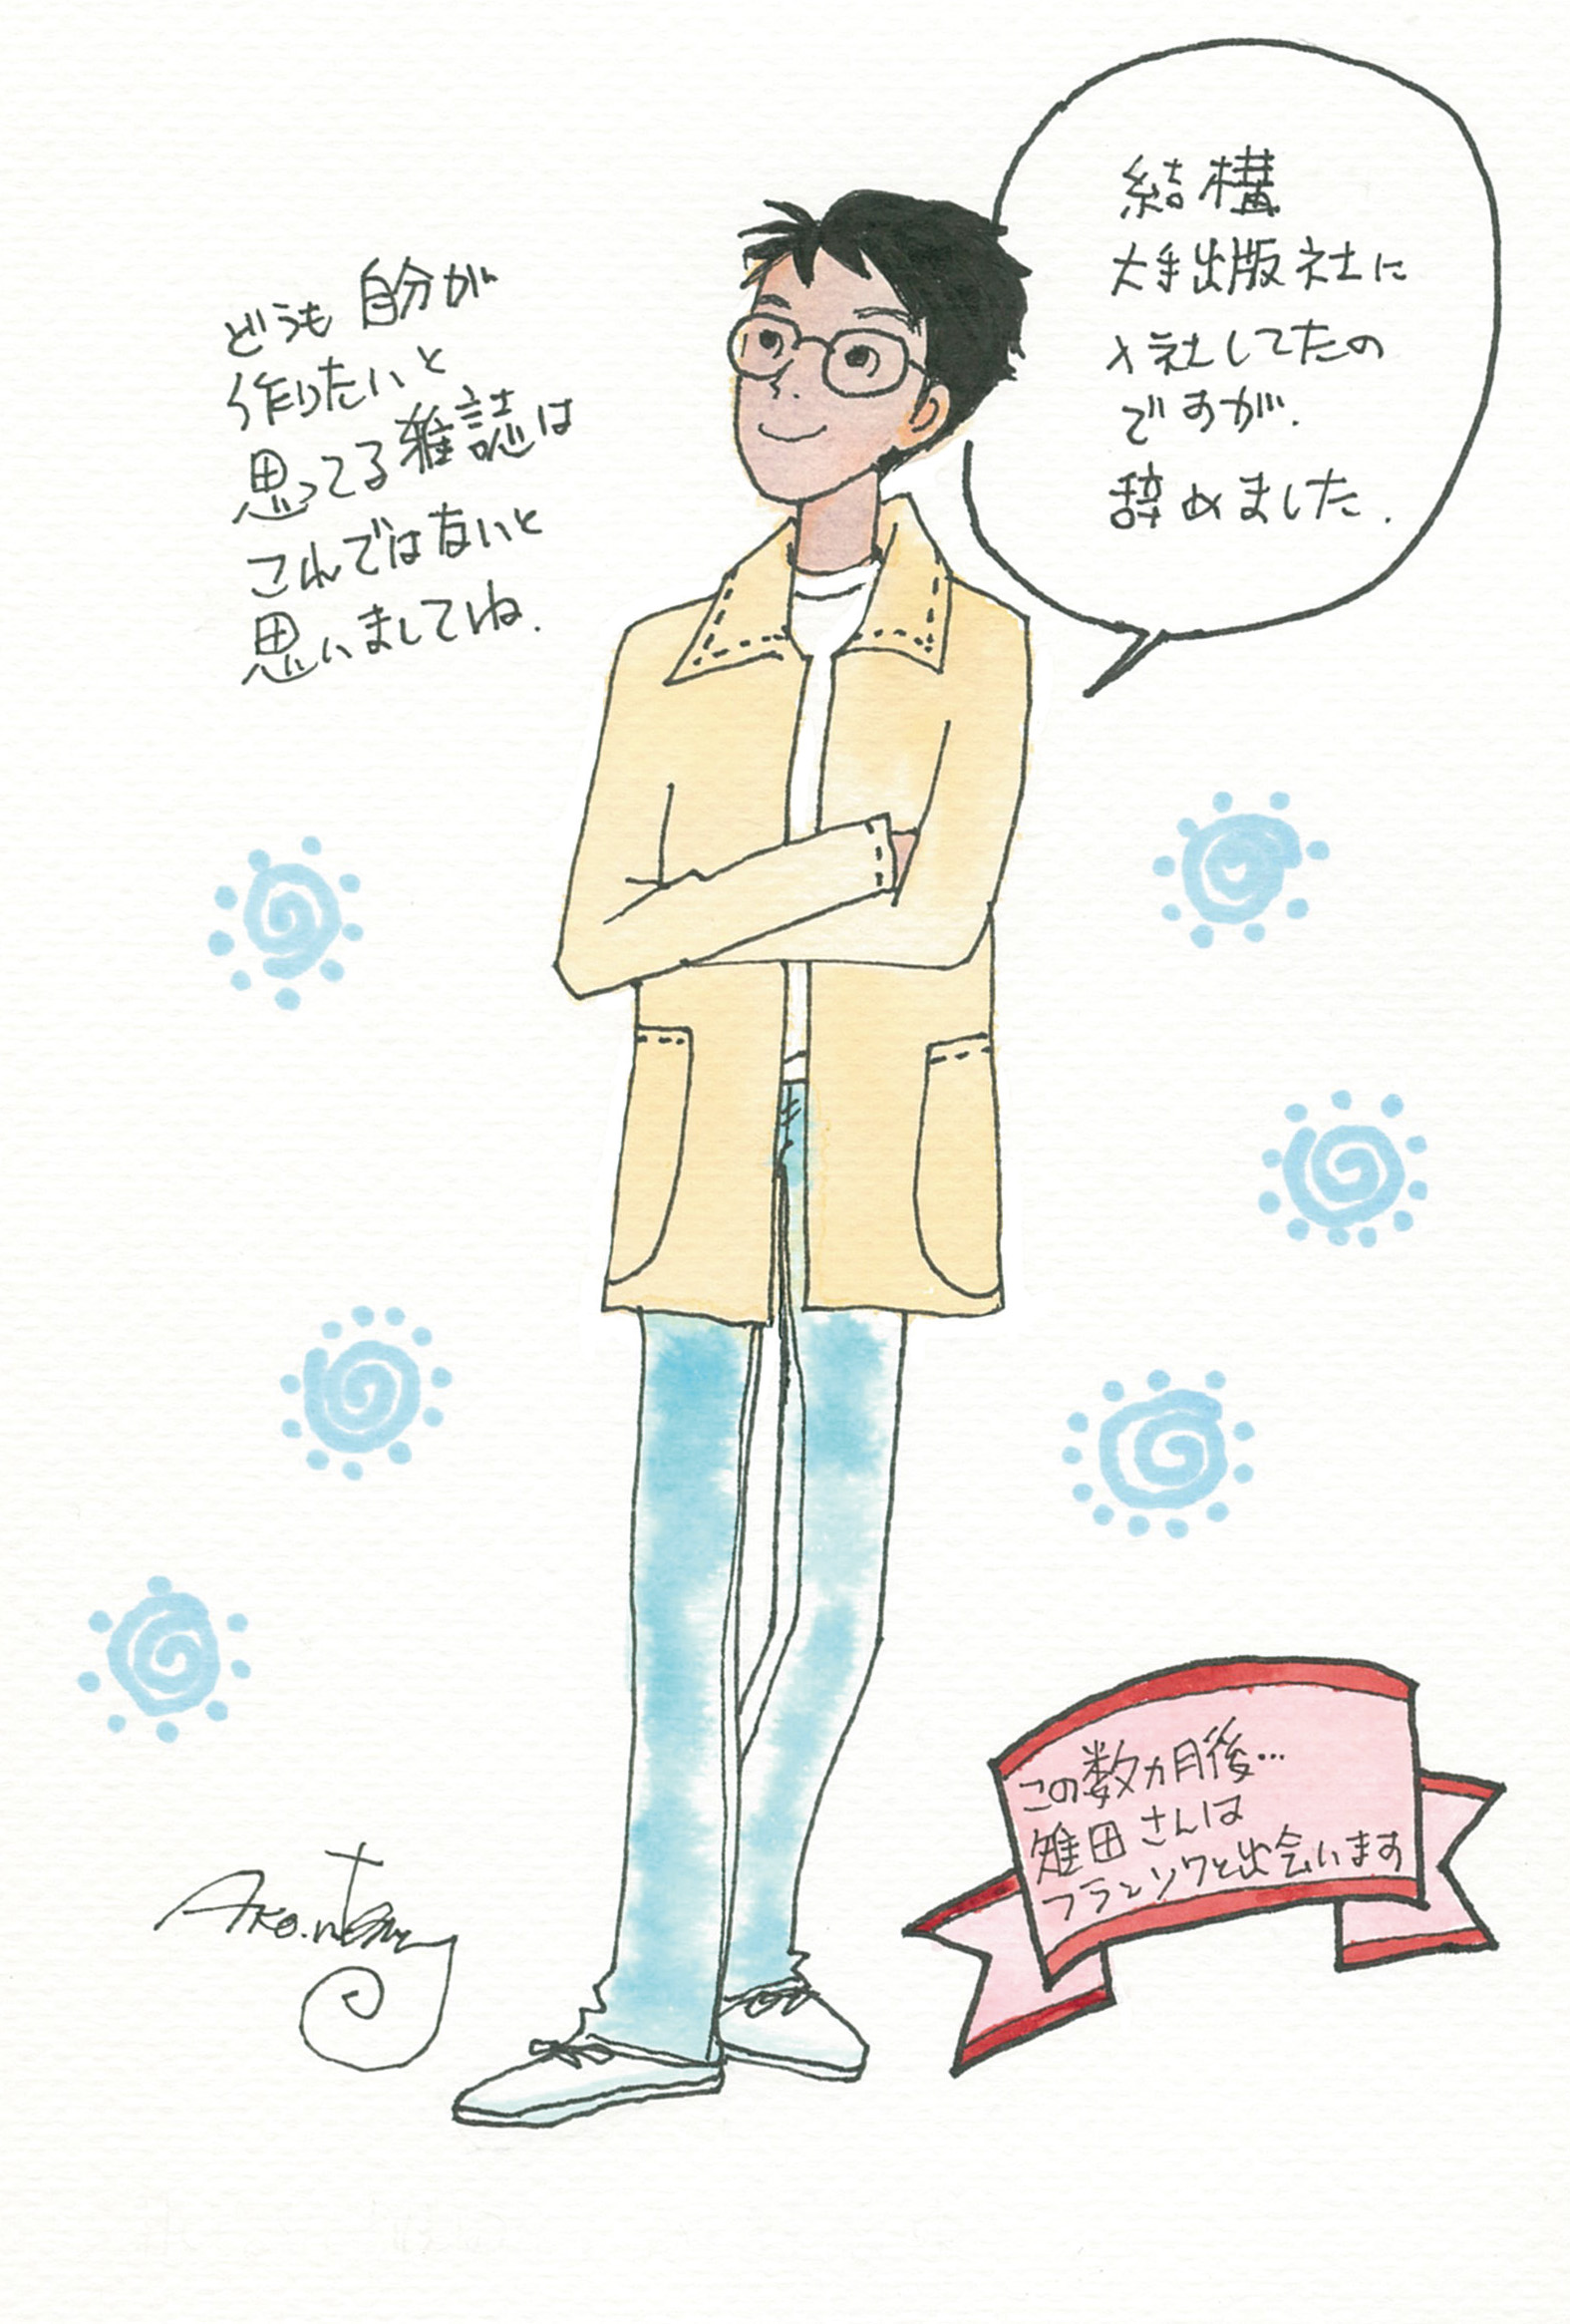 結構
大手出版社に
入社してたの
ですが.
辞めました.
どうも 自分が
作りたいと
思ってる雑誌は
これではないと
思いましてね.
この数ヵ月後…
雉田さんは
フランソワと出会います